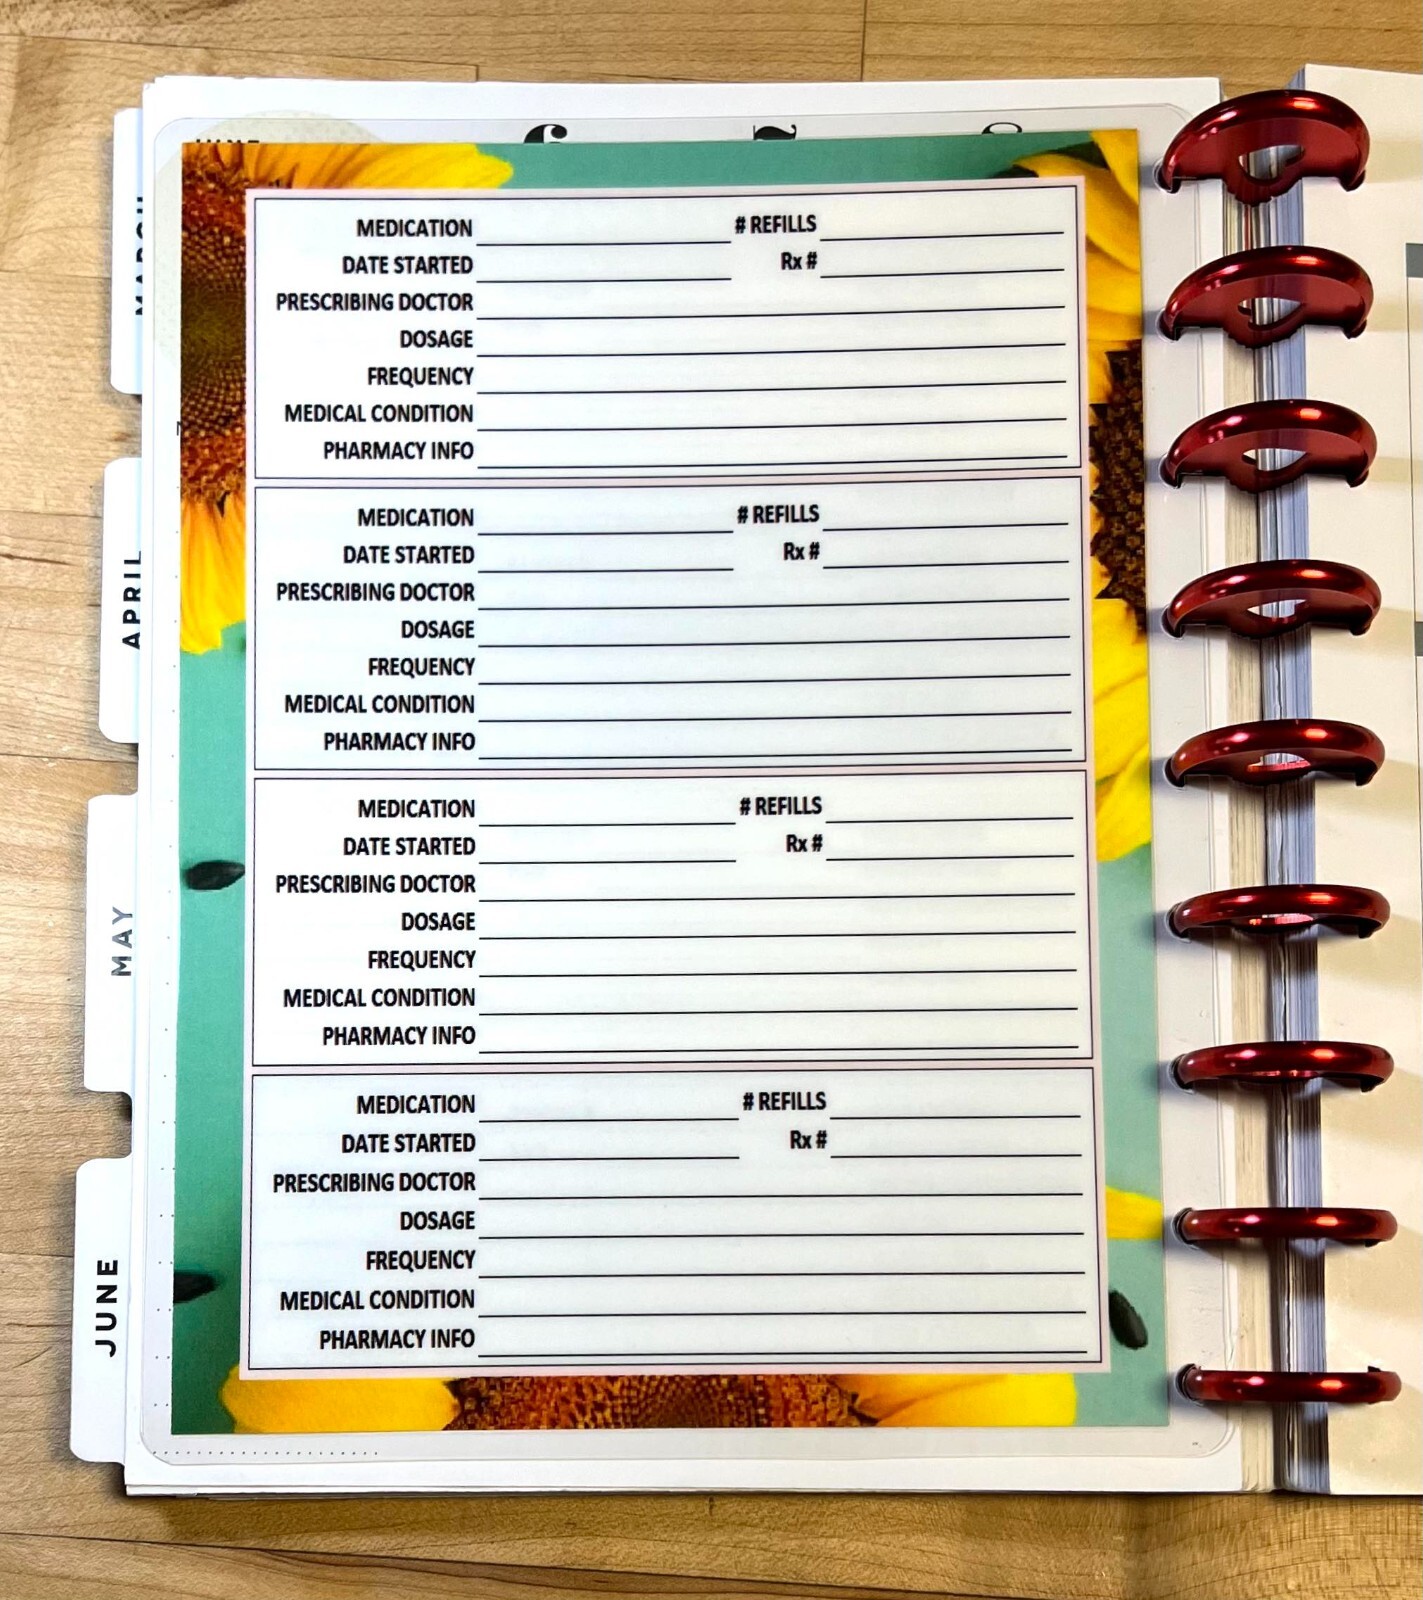 MEDICATION # REFILLS
DATE STARTED Rx #
PRESCRIBING DOCTOR
DOSAGE
FREQUENCY
MEDICAL CONDITION
PHARMACY INFO
MEDICATION # REFILLS
DATE STARTED Rx #
PRESCRIBING DOCTOR
DOSAGE
FREQUENCY
MEDICAL CONDITION
PHARMACY INFO
MEDICATION # REFILLS
DATE STARTED Rx #
PRESCRIBING DOCTOR
DOSAGE
FREQUENCY
MEDICAL CONDITION
PHARMACY INFO
MEDICATION # REFILLS
DATE STARTED Rx #
PRESCRIBING DOCTOR
DOSAGE
FREQUENCY
MEDICAL CONDITION
PHARMACY INFO
MARCH
APRIL
MAY
JUNE